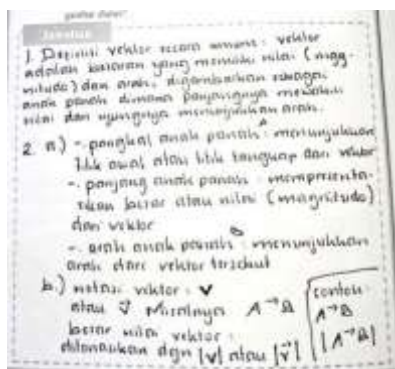 Jawaban
1. Definisi vektor secara umum : vektor
adalah besaran yang memiliki nilai (mag-
nitudo) dan arah, digambarkan sebagai
anak panah dimana panjangnya mewakili
nilai dan ujungnya menunjukkan arah.
2. a) -. pangkal anak panah : menunjukkan
titik awal atau titik tangkap dari vektor
-. panjang anak panah : mempresenta-
sikan besar atau nilai (magnitudo)
dari vektor
-. arah anak panah : menunjukkan
arah dari vektor tersebut
b.) notasi vektor : V
atau v⃗ misalnya A→B
besar nilai vektor :
dilonaukan dgn |v| atau |v⃗|
contoh :
A→B
|A→B|